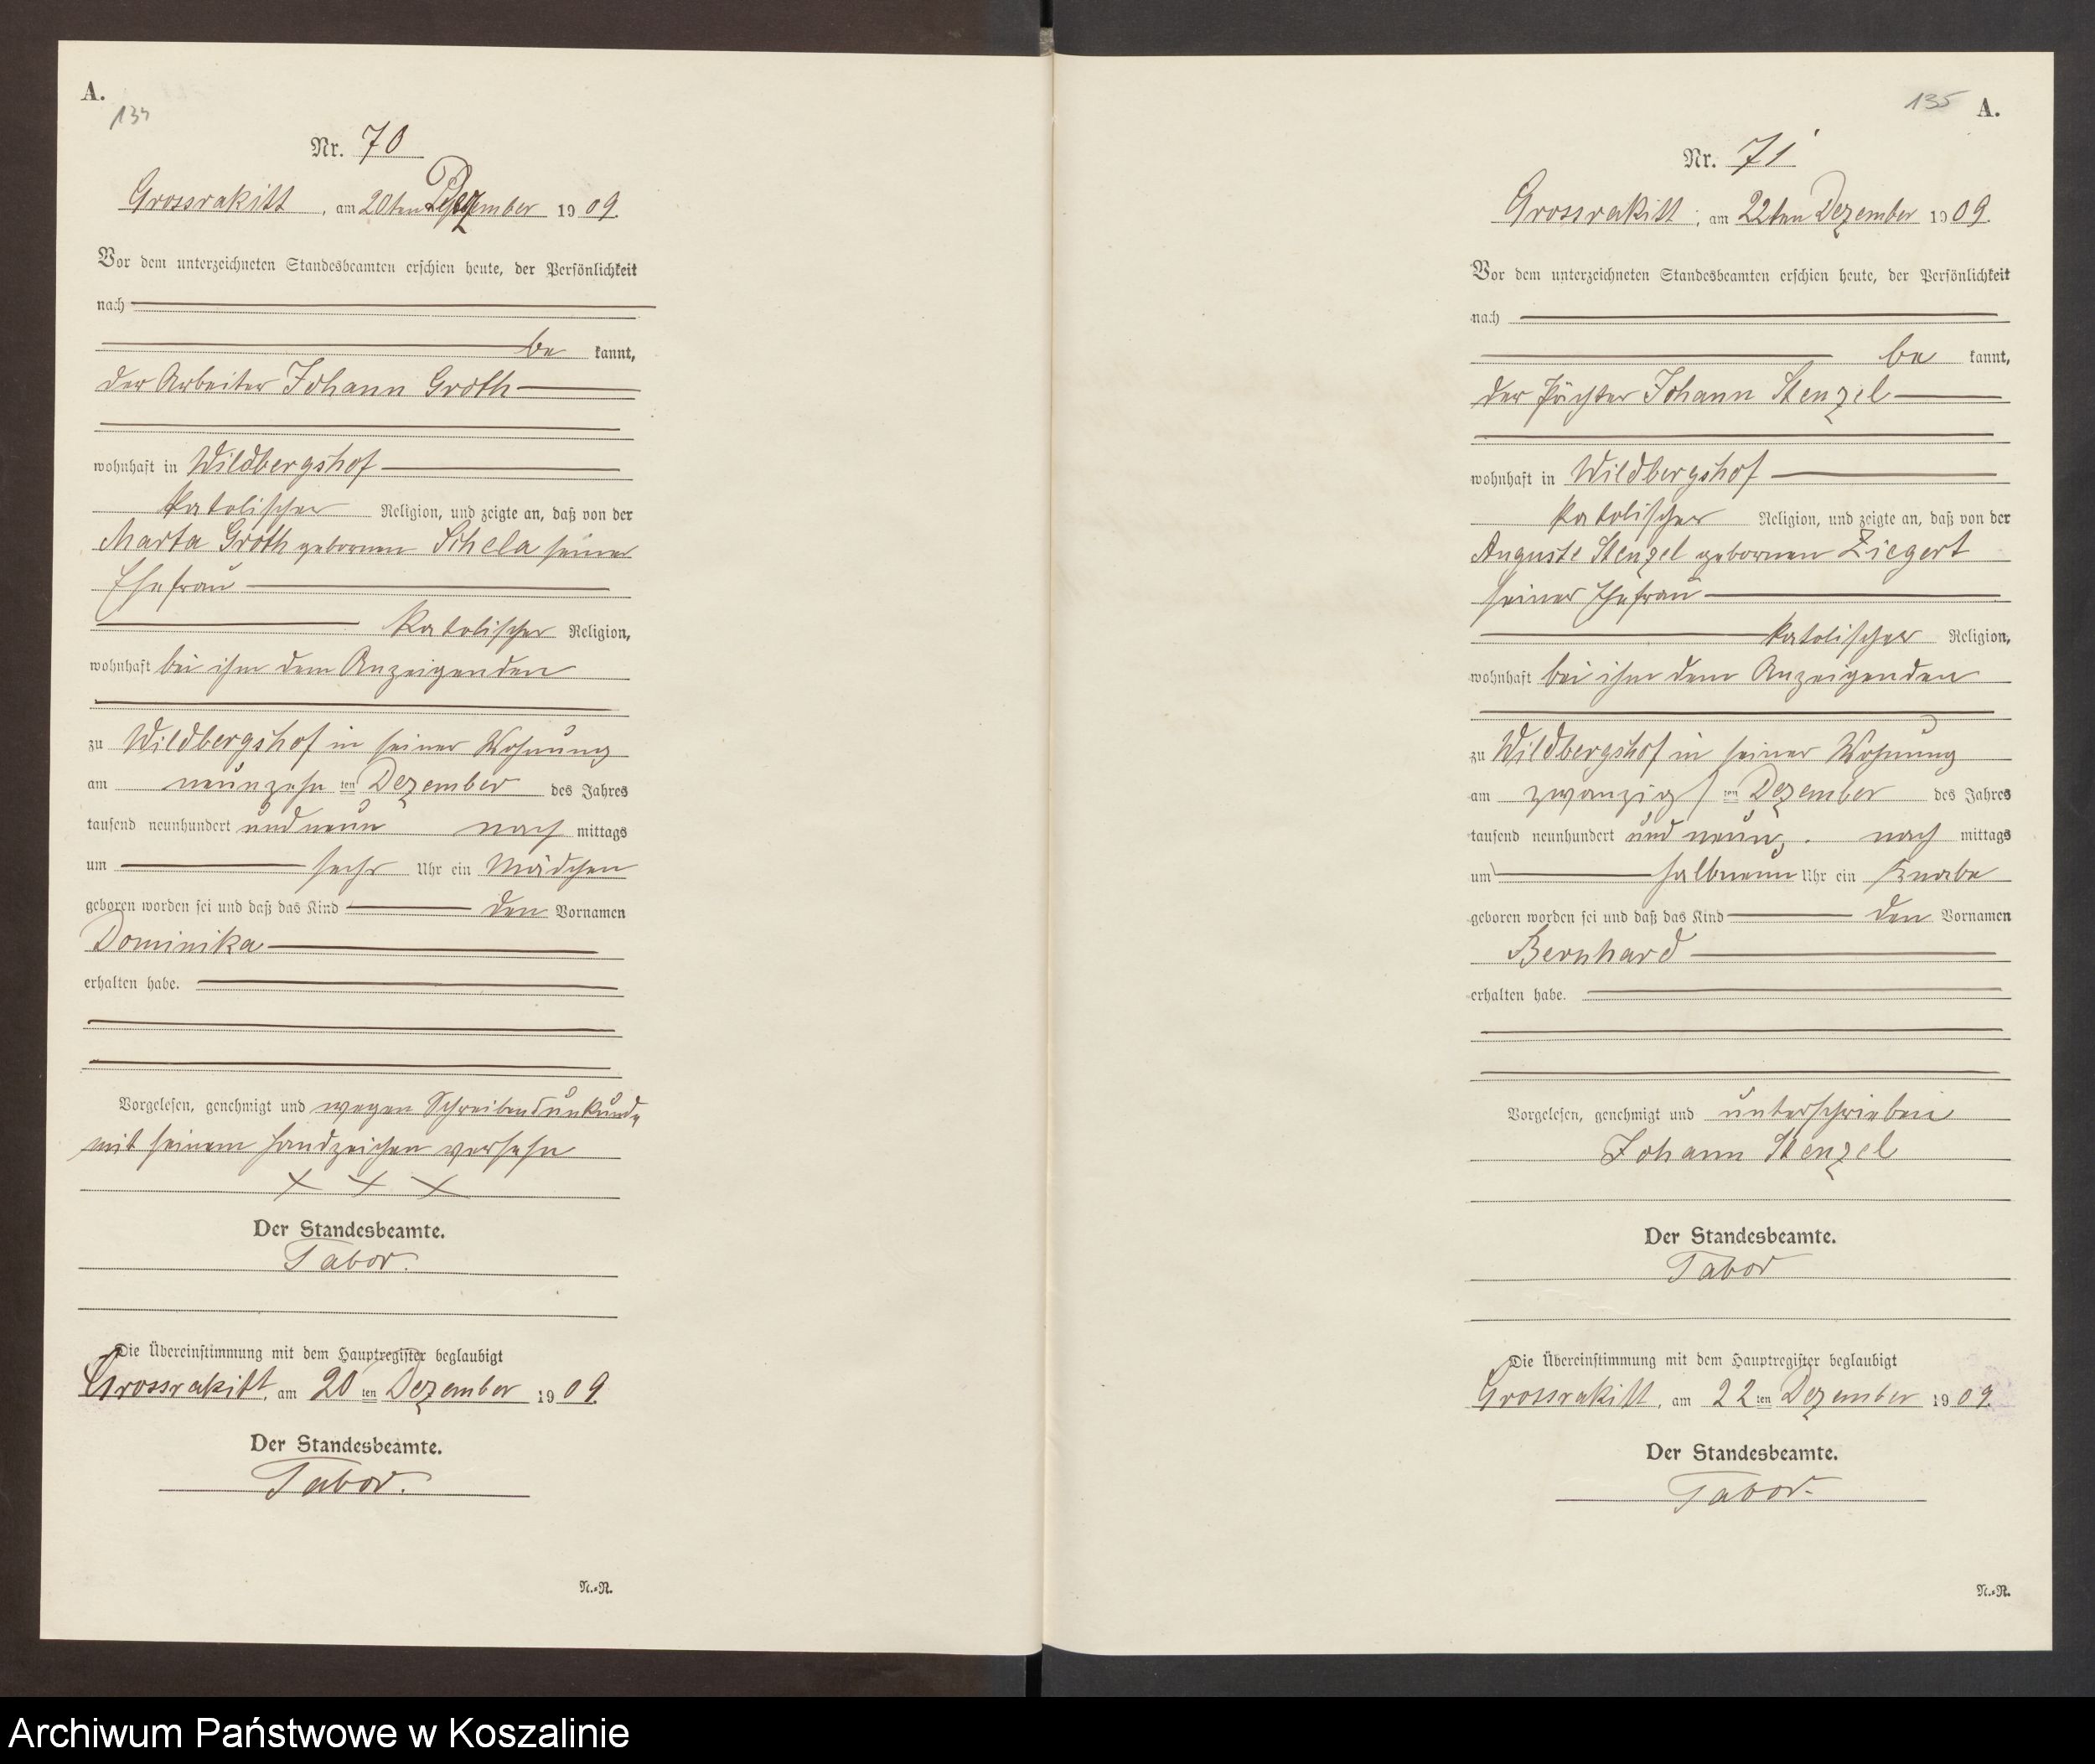 A.
134
Nr. 70
Grossrakitt, am 20ten Dezember 1909.
Vor dem unterzeichneten Standesbeamten erschien heute, der Persönlichkeit
nach
be kannt,
der Arbeiter Johann Groth
wohnhaft in Wildbergshof
katolischer Religion, und zeigte an, daß von der
Marta Groth gebornen Schela seiner
Ehefrau
katolischer Religion,
wohnhaft bei ihm dem Anzeigenden
zu Wildbergshof in seiner Wohnung
am neunzehn ten Dezember des Jahres
tausend neunhundert und neun nach mittags
um sechs Uhr ein Mädchen
geboren worden sei und daß das Kind den Vornamen
Dominika
erhalten habe.
Vorgelesen, genehmigt und wegen Schreibensunkunde
mit seinem Handzeichen versehn
+ + +
Der Standesbeamte.
Tabor.
Die Übereinstimmung mit dem Hauptregister beglaubigt
Grossrakitt, am 20 ten Dezember 1909.
Der Standesbeamte.
Tabor.
N.=R.
135 A.
Nr. 71
Grossrakitt, am 22ten Dezember 1909.
Vor dem unterzeichneten Standesbeamten erschien heute, der Persönlichkeit
nach
be kannt,
der Pächter Johann Stenzel
wohnhaft in Wildbergshof
katolischer Religion, und zeigte an, daß von der
Auguste Stenzel gebornen Ziegert
seiner Ehefrau
katolischer Religion,
wohnhaft bei ihm dem Anzeigenden
zu Wildbergshof in seiner Wohnung
am zwanzigs ten Dezember des Jahres
tausend neunhundert und neun, nach mittags
um halbneun Uhr ein Knabe
geboren worden sei und daß das Kind den Vornamen
Bernhard
erhalten habe.
Vorgelesen, genehmigt und unterschrieben
Johann Stenzel
Der Standesbeamte.
Tabor
Die Übereinstimmung mit dem Hauptregister beglaubigt
Grossrakitt, am 22 ten Dezember 1909.
Der Standesbeamte.
Tabor.
N.=R.
Archiwum Państwowe w Koszalinie